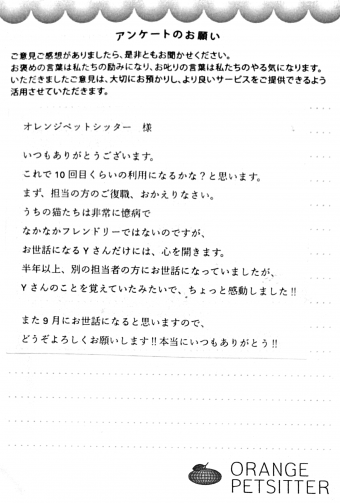 アンケートのお願い
ご意見ご感想がありましたら、是非ともお聞かせください。
お褒めの言葉は私たちの励みになり、お叱りの言葉は私たちのやる気になります。
いただきましたご意見は、大切にお預かりし、より良いサービスをご提供できるよう
活用させていただきます。
オレンジペットシッター 様
いつもありがとうございます。
これで10回目くらいの利用になるかな?と思います。
まず、担当の方のご復職、おかえりなさい。
うちの猫たちは非常に憶病で
なかなかフレンドリーではないのですが、
お世話になるYさんだけには、心を開きます。
半年以上、別の担当者の方にお世話になっていましたが、
Yさんのことを覚えていたみたいで、ちょっと感動しました!!
また9月にお世話になると思いますので、
どうぞよろしくお願いします!!本当にいつもありがとう!!
ORANGE
PETSITTER